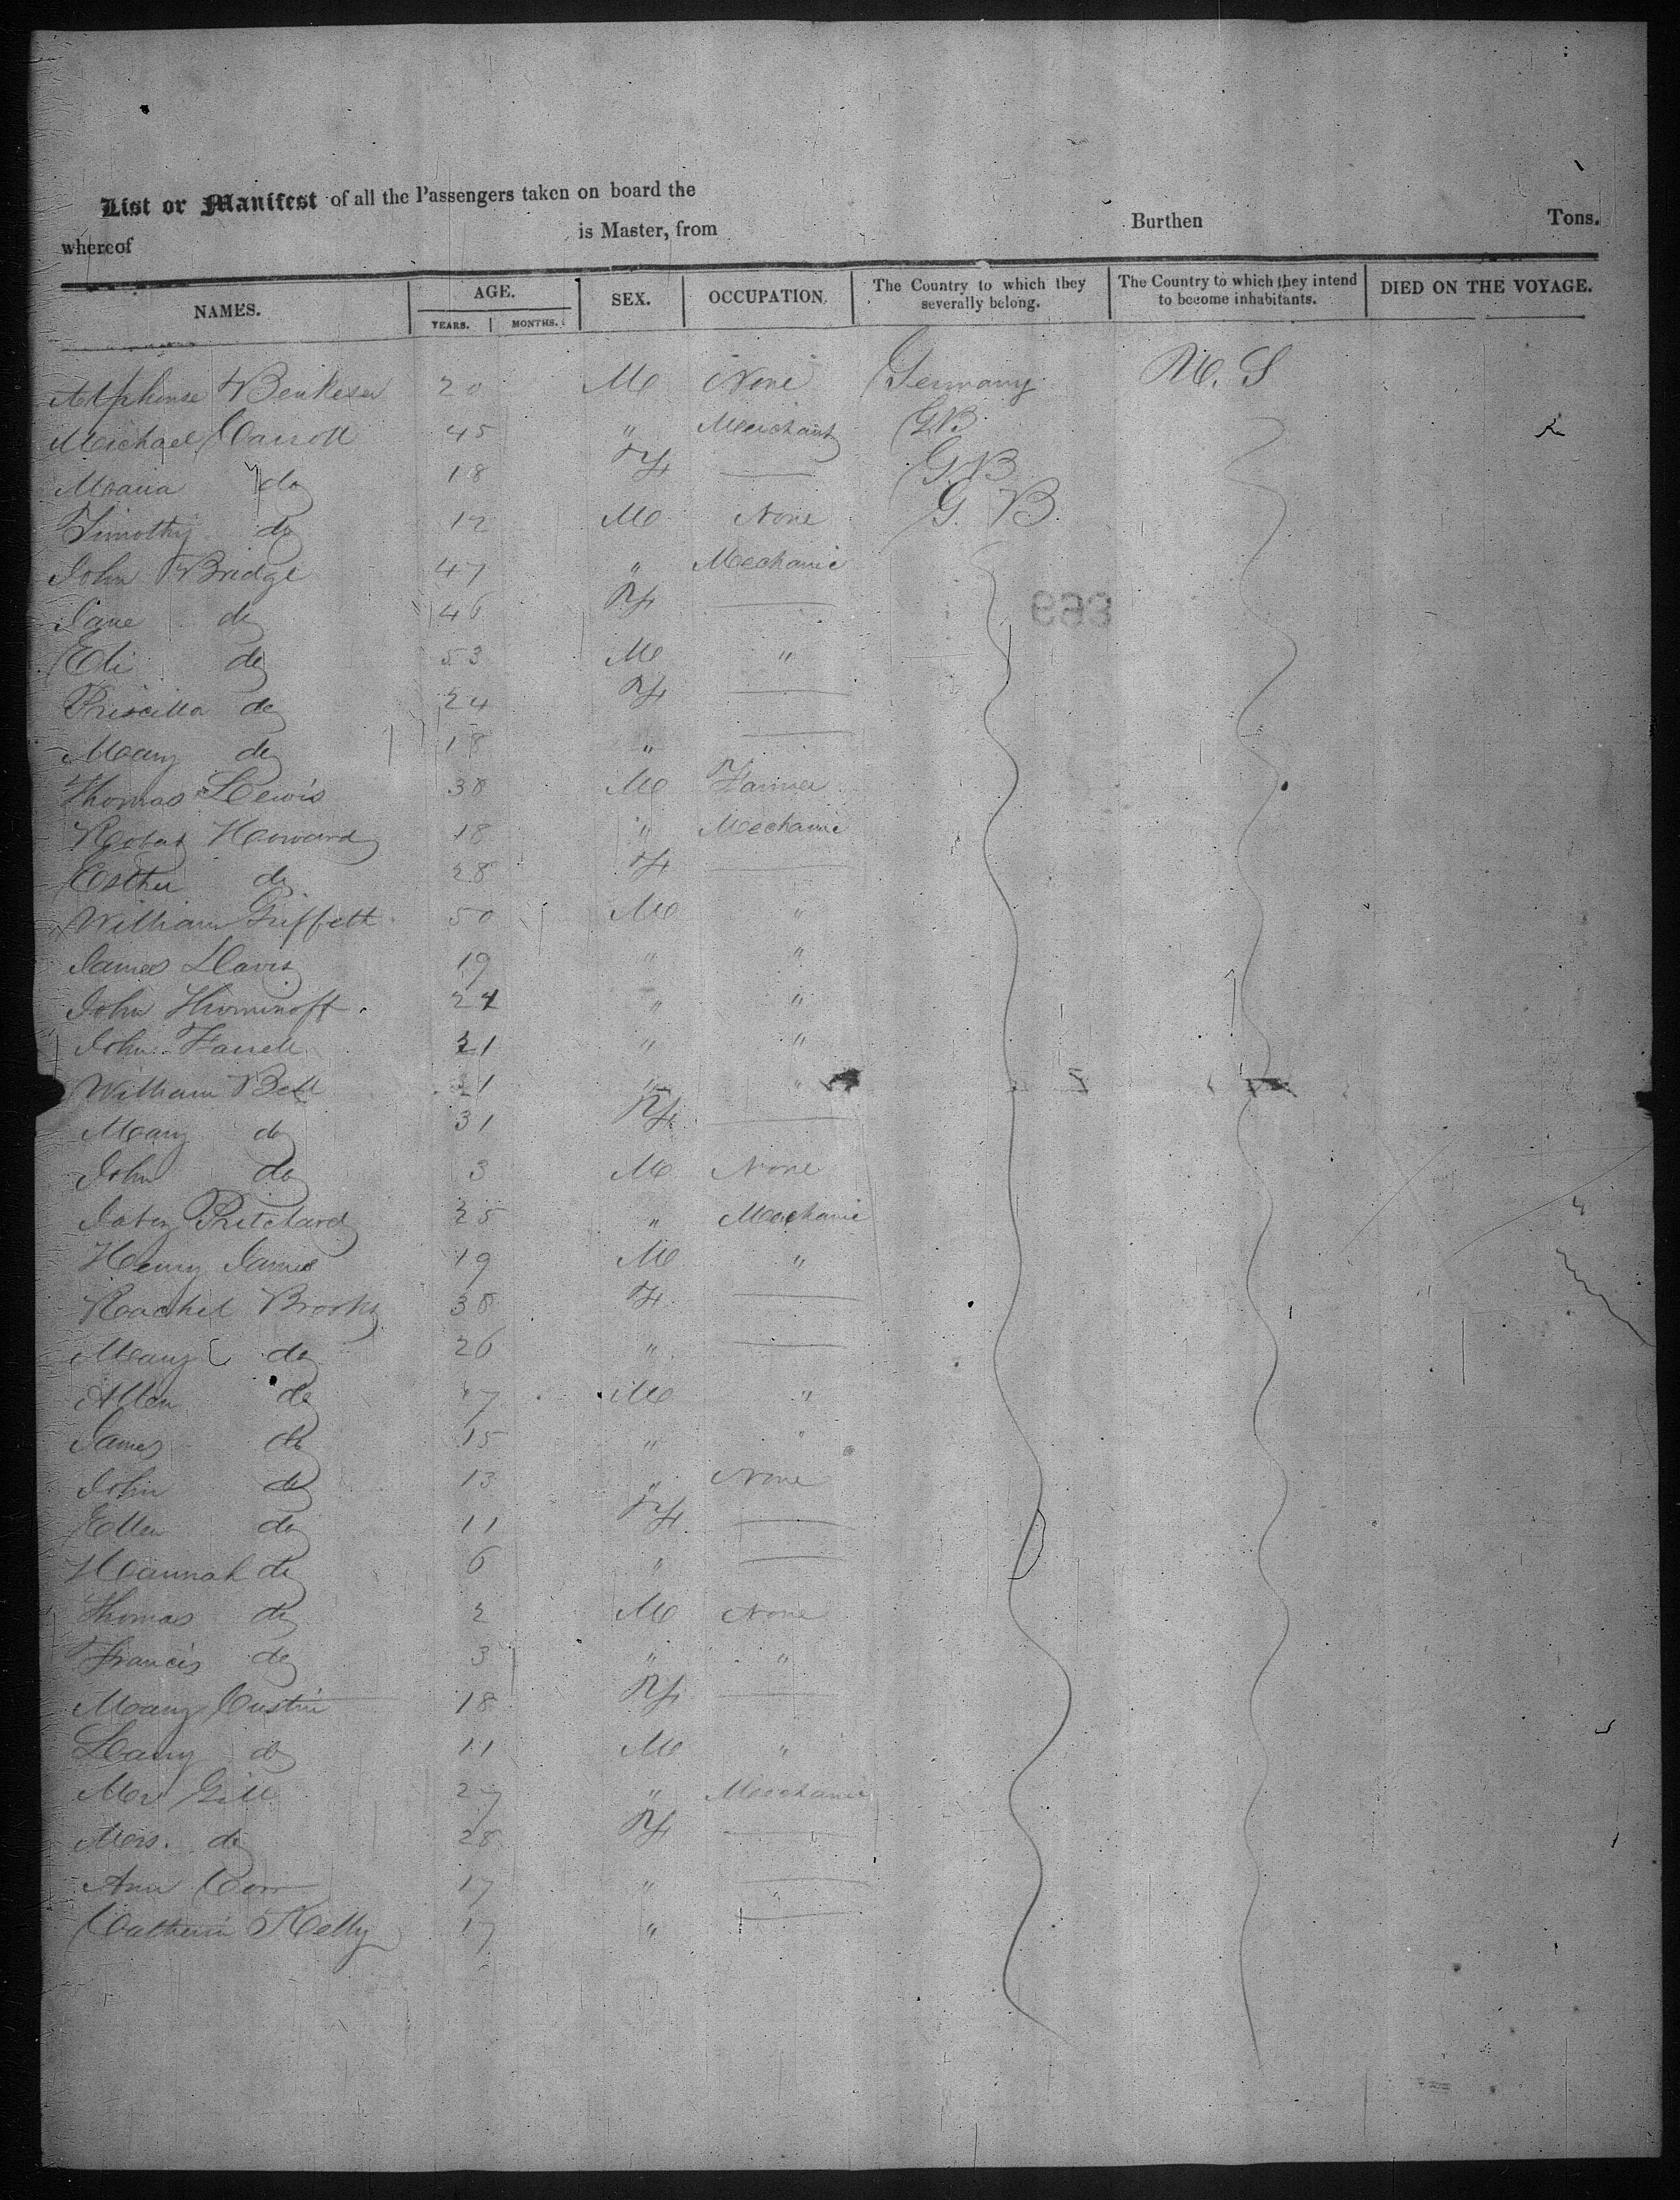 List or Manifest of all the Passengers taken on board the
whereof is Master, from Burthen Tons.
NAMES. AGE. SEX. OCCUPATION. The Country to which they severally belong. The Country to which they intend to become inhabitants. DIED ON THE VOYAGE.
YEARS. MONTHS.
Alphonse 20 M None Germany U. S
Michael Carroll 45 " Merchant G B
Maria do 18 F — G. B
Timothy do 12 M None G. B.
John Bridge 47 " Mechanic
Jane do 46 F —
Eli do 53 M "
Priscilla do 24 F —
Mary do 18 " —
Thomas Lewis 38 M Farmer
Robert Howard 18 " Mechanic
Esther do 28 F —
William Griffett 50 M "
James Davis 19 " "
John 24 " "
John Farrell 21 " "
William Bell 21 " "
Mary do 31 F —
John do 3 M None
Jabez Pritchard 25 " Mechanic
Henry James 19 M "
Rachel Brooks 38 F —
Mary do 26 " —
Allen do 17 M "
James do 15 " "
John do 13 " None
Ellen do 11 F —
Hannah do 6 " —
Thomas do 2 M None
Francis do 3 " "
Mary Custin 18 F —
Harry do 11 M "
Mr Gill 27 " Mechanic
Mrs. do 28 F —
Ann Corr 17 " —
Catherin Kelly 17 " —